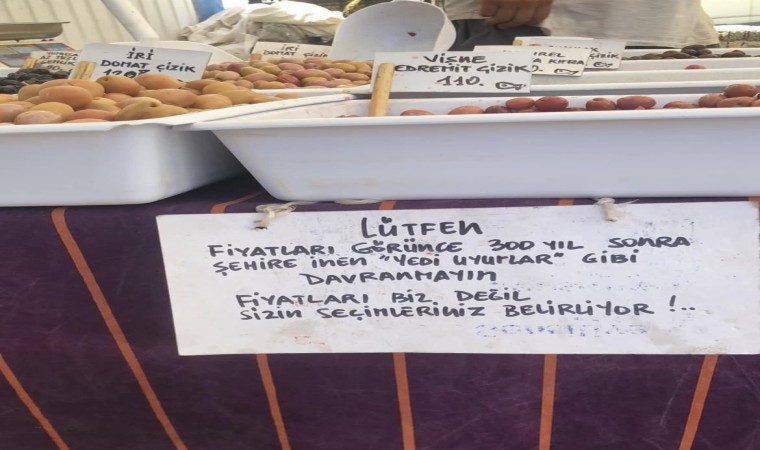 İRİ
DOMAT ÇİZİK
120.
İRİ
DOMAT ÇİZİK
VİŞNE
EDREMİT ÇİZİK
110.
LÜTFEN
FİYATLARI GÖRÜNCE 300 YIL SONRA
ŞEHİRE İNEN "YEDİ UYURLAR" GİBİ
DAVRANMAYIN
FİYATLARI BİZ DEĞİL
SİZİN SEÇİMLERİNİZ BELİRLİYOR !..